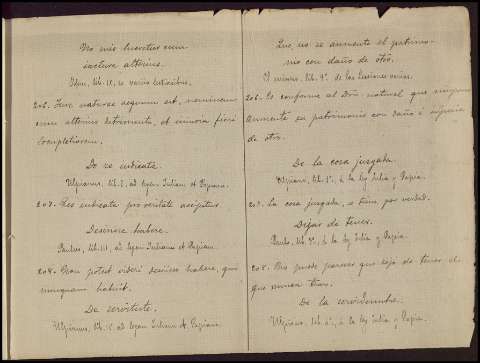 No mis lucretur cum
iactura alterius.
Idem, lib. IX, ex variis lectionibus.
206. Jure naturae aequum est, neminem
cum alterius detrimento, et injuria fieri
locupletiorem.
De re iudicata.
Ulpianus, lib. I, ad legem Iuliam et Papiam.
207. Res iudicata pro veritate accipitur.
Desinere habere.
Paulus, lib. III, ad legem Iuliam et Papiam.
208. Non potest videri desiisse habere, qui
nunquam habuit.
De servitute.
Ulpianus, lib. I, ad legem Iuliam et Papiam.
Que no se aumente el patrimo-
nio con daño de otro.
El mismo, lib. 9º, de las lecciones varias.
206. Es conforme al Dro. natural que ninguno
aumente su patrimonio con daño é injuria
de otro.
De la cosa juzgada.
Ulpiano, lib. 1º, á la ley Julia y Papia.
207. La cosa juzgada, se tiene por verdad.
Dejar de tener.
Paulo, lib. 3º, á la ley Julia y Papia.
208. No puede parecer que deja de tener el
que nunca tuvo.
De la servidumbre.
Ulpiano, lib. á la ley Julia y Papia.